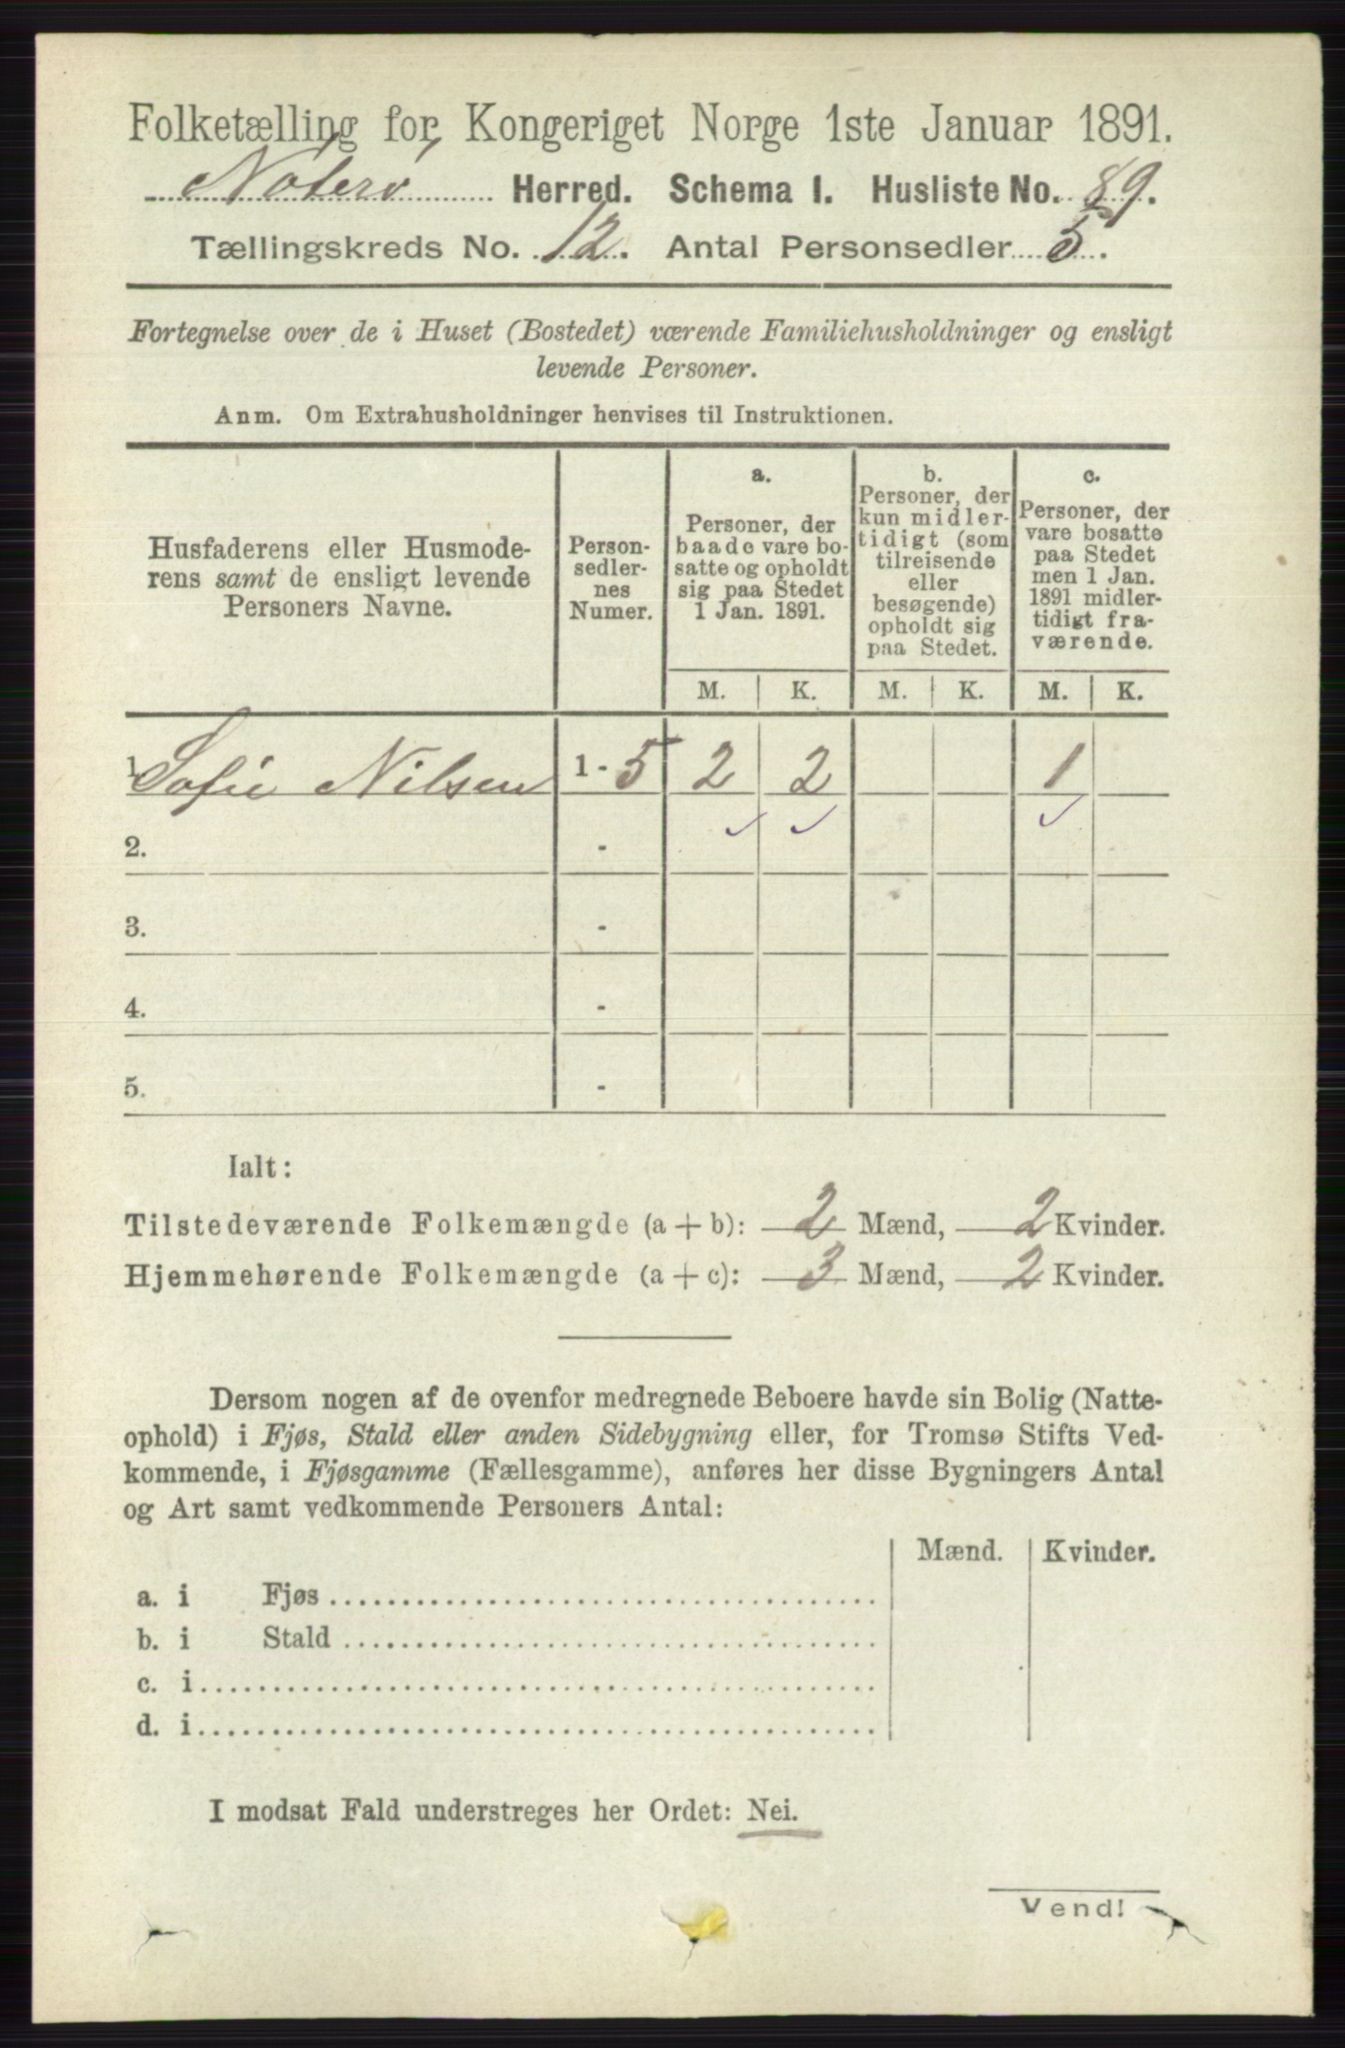 Folketælling for Kongeriget Norge 1ste Januar 1891.
Nøterø Herred. Schema I. Husliste No. 89.
Tællingskreds No. 12. Antal Personsedler 5.
Fortegnelse over de i Huset (Bostedet) værende Familiehusholdninger og ensligt
levende Personer.
Anm. Om Extrahusholdninger henvises til Instruktionen.
Husfaderens eller Husmode-
rens samt de ensligt levende
Personers Navne.
Person-
sedler-
nes
Numer.
a.
Personer, der
baade vare bo-
satte og opholdt
sig paa Stedet
1 Jan. 1891.
b.
Personer, der
kun midler-
tidigt (som
tilreisende
eller
besøgende)
opholdt sig
paa Stedet.
c.
Personer, der
vare bosatte
paa Stedet
men 1 Jan.
1891 midler-
tidigt fra-
værende.
M. K. M. K. M. K.
1. Sofie Nilsen 1 - 5 2 2 1
2. -
3. -
4. -
5. -
Ialt:
Tilstedeværende Folkemængde (a + b): 2 Mænd, 2 Kvinder.
Hjemmehørende Folkemængde (a + c): 3 Mænd, 2 Kvinder.
Dersom nogen af de ovenfor medregnede Beboere havde sin Bolig (Natte-
ophold) i Fjøs, Stald eller anden Sidebygning eller, for Tromsø Stifts Ved-
kommende, i Fjøsgamme (Fællesgamme), anføres her disse Bygningers Antal
og Art samt vedkommende Personers Antal:
Mænd. Kvinder.
a. i Fjøs
b. i Stald
c. i
d. i
I modsat Fald understreges her Ordet: Nei.
Vend!